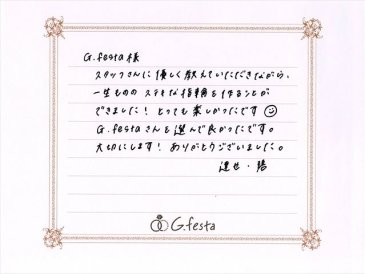 G.festa 様
スタッフさんに優しく教えていただきながら、
一生もののステキな指輪を作ることが
できました！とっても楽しかったです
G.festaさんを選んで良かったです。
大切にします！ありがとうございました。
G.festa